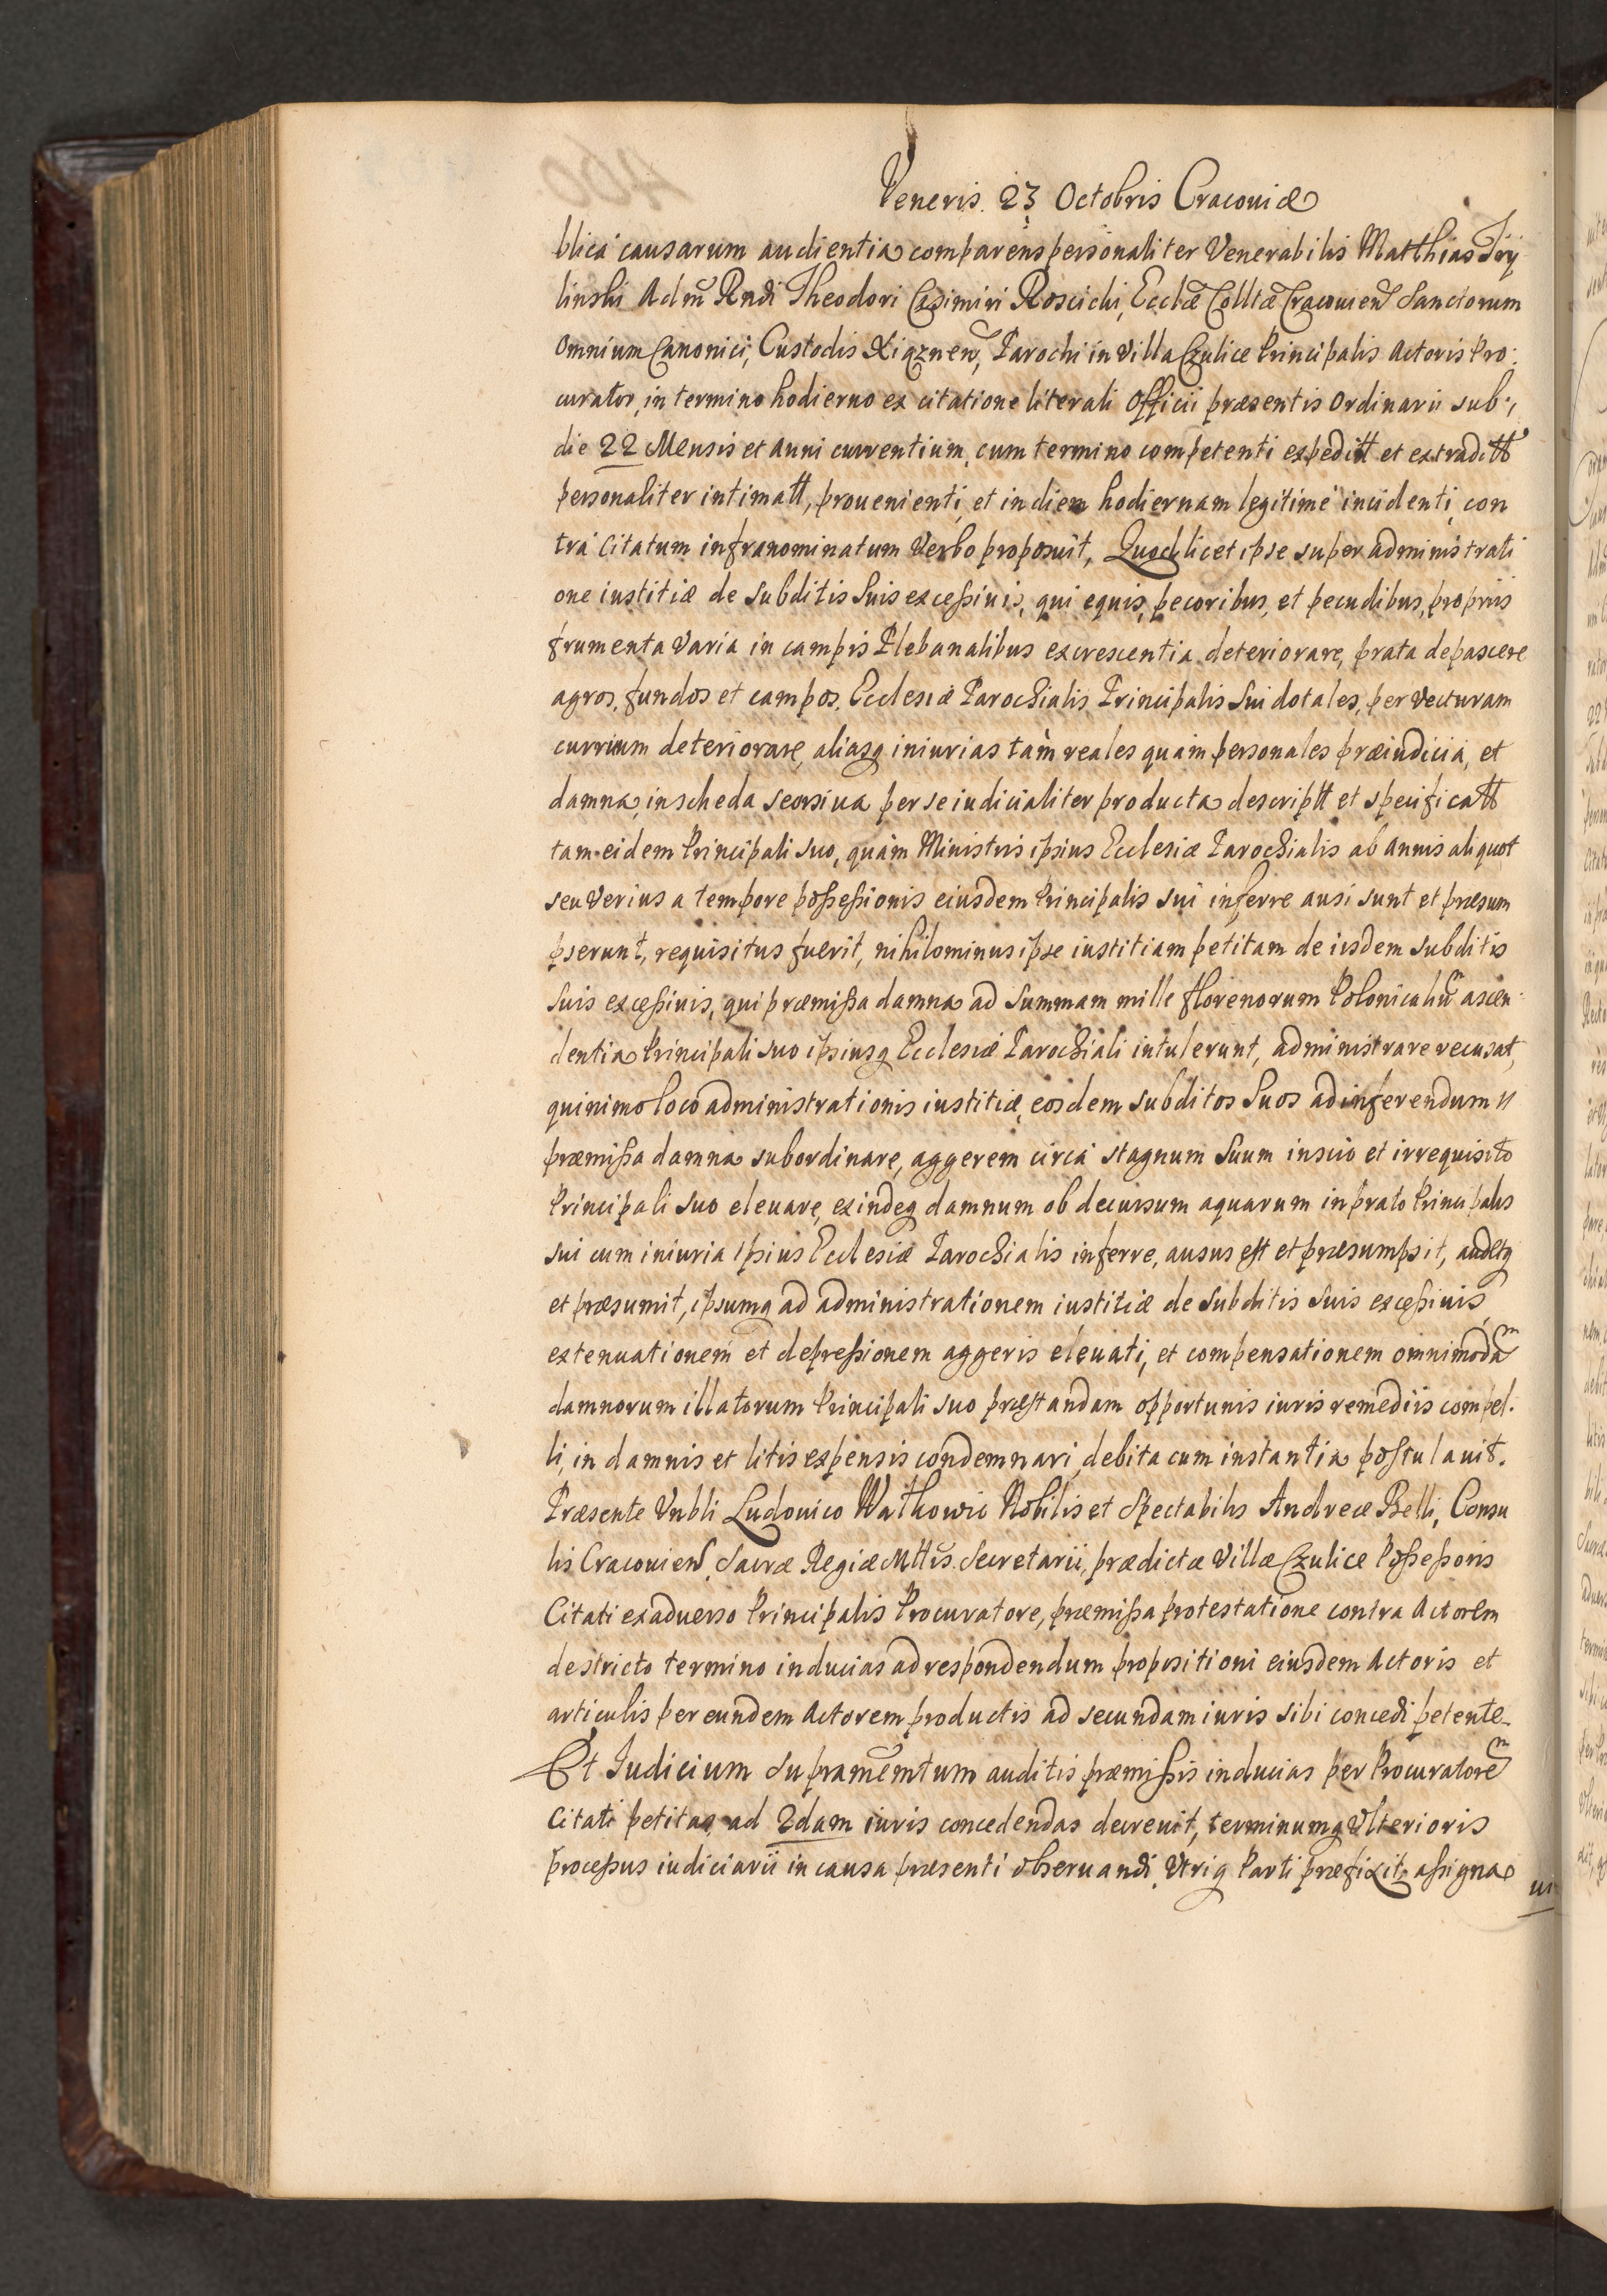 Veneris. 23 Octobris Cracoviæ
blica causarum audientia comparens personaliter Venerabilis Matthias Try
linski Adm Rndi Theodori Casimiri Roscicki, Ecclæ Colltæ Cracovien Sanctorum
Omnium Canonici, Custodis Xiąznen, Parochi in Villa Czulice Principalis Actoris Pro:
curator, in termino hodierno ex citatione literali Officii præsentis Ordinarii sub
die 22 Mensis et Anni currentium, cum termino competenti expeditt et extraditt
personaliter intimatt, provenienti, et in diem hodiernam legitime incidenti, con
tra Citatum infranominatum Verbo proposuit, Quod licet ipse super administrati
one iustitiæ de Subditis Suis excessivis, qui equis, pecoribus, et pecudibus, propriis
frumenta varia in campis Plebanalibus excrescentia deteriorare, prata depascere
agros, fundos et campos, Ecclesiæ Parochialis Principalis Sui dotales, per vecturam
curruum deteriorare, aliasq iniurias tam reales quam personales præiudicia, et
damna, in scheda seorsiva per se iudicialiter producta descriptt et specificatt
tam eidem Principali suo, quam Ministris ipsius Ecclesiæ Parochialis ab Annis aliquot
seu verius a tempore possessionis eiusdem Principalis sui inferre ausi sunt et præsum
pserunt, requisitus fuerit, nihilominus ipse iustitiam petitam de iisdem subditis
suis excessivis, qui præmissa damna ad Summam mille florenorum Polonicaliũ ascen
dentia Principali suo ipsiusq Ecclesiæ Parochiali intulerunt, administrare recusat,
quinimo loco administrationis iustitiæ, eosdem subditos Suos ad inferendum
præmissa damna subordinare, aggerem circa stagnum Suum inscio et irrequisito
Principali suo elevare, exindeq damnum ob decursum aquarum in prato Principalis
sui cum iniuria ipsius Ecclesiæ Parochialis inferre, ausus est et præsumpsit, audetq
et præsumit, ipsumq ad administrationem iustitiæ de Subditis Suis excessivis,
extenuationem et depressionem aggeris elevati, et compensationem omnimodam
damnorum illatorum Principali suo præstandam opportunis iuris remediis compel:
li, in damnis et litis expensis condemnari, debita cum instantia postulavit.
Præsente Vnbli Ludovico Watkowic Nobilis et Spectabilis Andreæ Belli, Consu
lis Cracovien, Sacræ Regiæ Mttis Secretarii, prædictæ Villæ Czulice Possessoris
Citati ex adverso Principalis Procuratore, præmissa protestatione contra Actorem
de stricto termino inducias ad respondendum propositioni eiusdem Actoris et
articulis per eundem Actorem productis ad secundam iuris sibi concedi petente.
Et Iudicium Supramemtum auditis præmissis inducias per Procuratorem
Citati petitas, ad 2dam iuris concedendas decrevit, terminumq Ulterioris
processus iudiciarii in causa præsenti observandi, Utriq Parti præfixit, assigna
vi